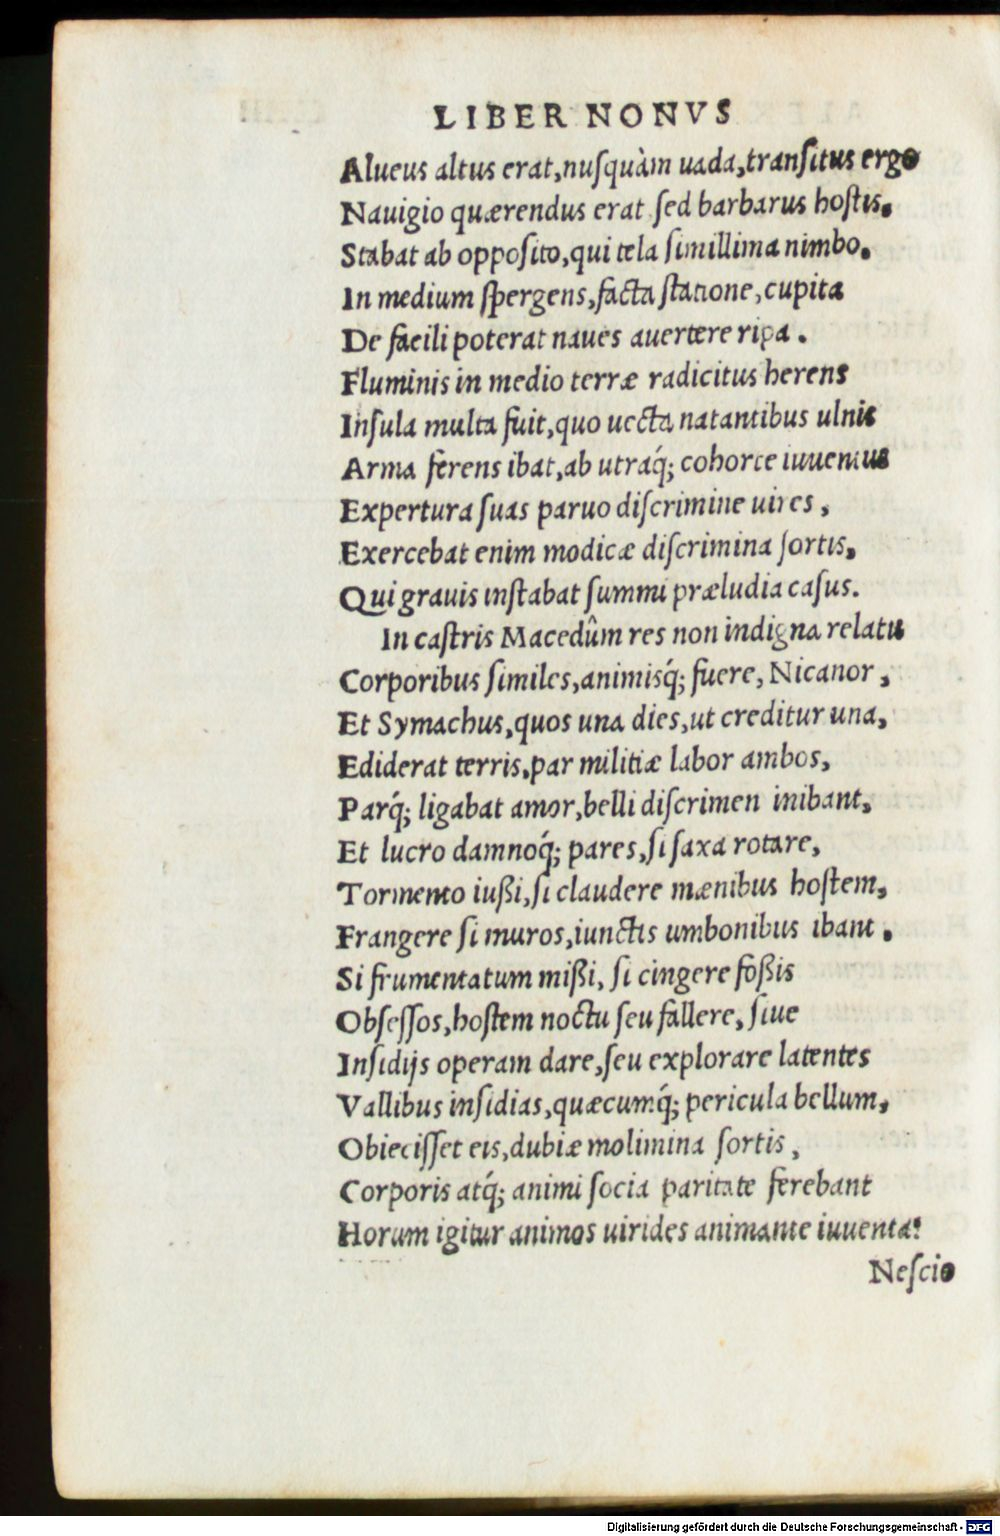 LIBER NONVS
Alueus altus erat,nuſquàm uada,tranſitus ergo
Nauigio quærendus erat ſed barbarus hoſtis.
Stabat ab oppoſito,qui tela ſimillima nimbo.
In medium ſpergens,facta ſtatione,cupita
De facili poterat naues auertere ripa.
Fluminis in medio terræ radicitus herens
Inſula multa fuit,quo uecta natantibus ulnis
Arma ferens ibat,ab utraq́; cohorte iuuentus
Expertura ſuas paruo diſcrimine uires,
Exercebat enim modicæ diſcrimina ſortis,
Qui grauis inſtabat ſummi præludia caſus.
In caſtris Macedûm res non indigna relatu
Corporibus ſimiles,animisq́; fuere, Nicanor,
Et Symachus,quos una dies,ut creditur una,
Ediderat terris,par militiæ labor ambos,
Parq́; ligabat amor,belli diſcrimen inibant,
Et lucro damnoq́; pares,ſi ſaxa rotare,
Tormento iußi,ſi claudere mænibus hoſtem,
Frangere ſi muros,iunctis umbonibus ibant.
Si frumentatum mißi, ſi cingere foßis
Obſeſſos,hoſtem noctu ſeu fallere, ſiue
Inſidijs operam dare,ſeu explorare latentes
Vallibus inſidias,quæcumq́; pericula bellum,
Obieciſſet eis,dubiæ molimina ſortis,
Corporis atq́; animi ſocia paritate ferebant
Horum igitur animos uirides animante iuuenta:
Neſcio
Digitalisierung gefördert durch die Deutsche Forschungsgemeinschaft - DFG